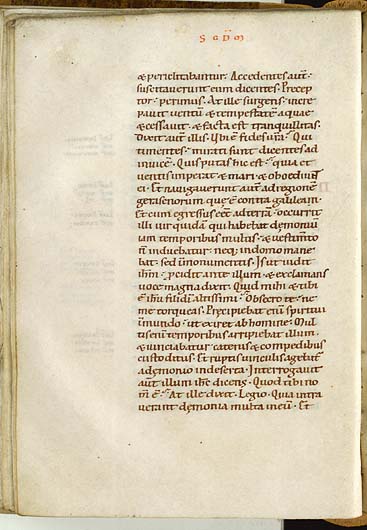 S G D M
& periclitabantur. Accedentes aut̄
suscitaverunt eum dicentes. Precep
tor perimus. At ille surgens incre
pavit ventū & tempestatē aquae
& cessavit. & facta est tranquillitas.
Dixit aut̄ illis. Ubi ē fides vr̄a. Qui
timentes mirati sunt dicentes ad
invicē. Quis putas hic est. quia et
ventis imperat & mari & oboediunt
ei. Et navigaverunt aut̄ ad regionē
gerasenorum quę ē contra galileam.
Et cum egressus eēt ad terrā. occurrit
illi vir quidā qui habebat demoniū
iam temporibus multis. & vestimto
n̄ induebatur. neq; in domo mane
bat. sed in monumentis. Is ut vidit
ihm̄. p̄cidit ante illum. & exclamans
voce magna dixit. Quid mihi & tibi
ē ihū fili dī altissimi. Obsecro te ne
me torqueas. Precipiebat enī spiritui
inmundo ut exiret ab homine. Mul
tis enī temporibus arripiebat illum.
& vinciebatur catenis & compedibus
custoditus. Et ruptis vinculis agebat᷑
a demonio in deserta. Interrogavit
aut̄ illum ihc̄ dicens. Quod tibi no
m̄ ē. At ille dixit. Legio. Quia intra
verant demonia multa in eū. Et